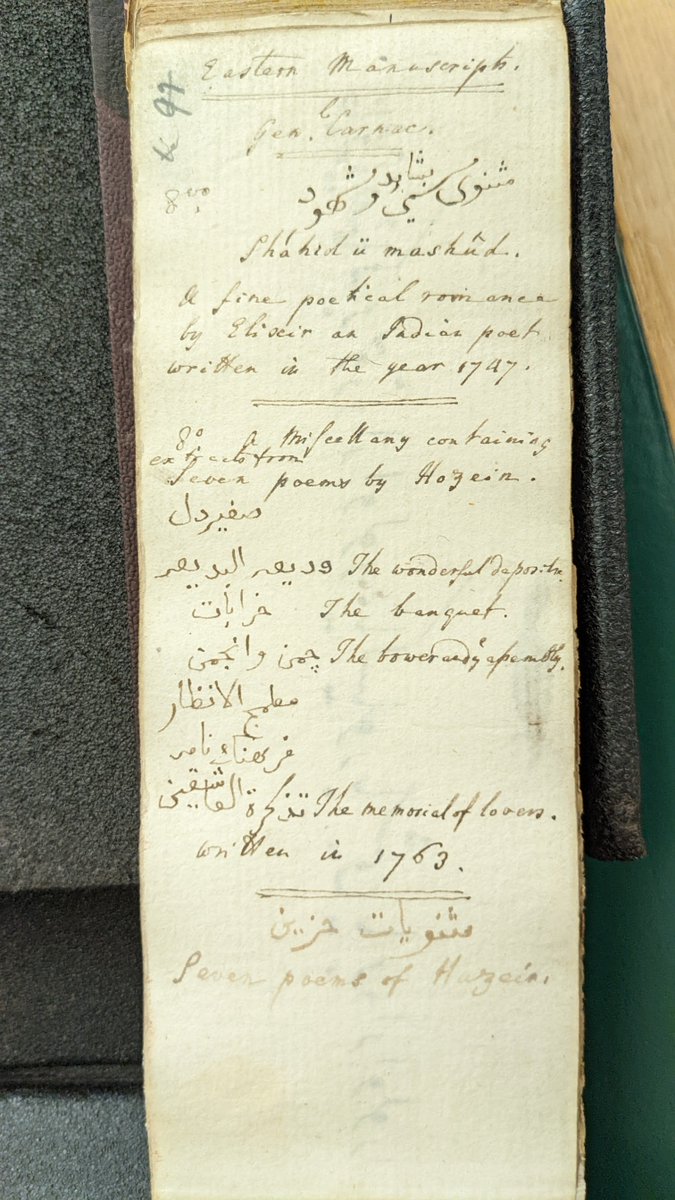 Eastern Manuscripts.
Gen.l Carnac.
مثنوی مسمی بشاهد و مشهود
8vo.
Sháhid ü mashûd.
A fine poetical romance
by Elixir an Indian poet
written in the year 1747.
8o A Miscellany containing
extracts from
Seven poems by Hozein.
صفیر دل
ودیعه البدیعه The wonderful
خرابات The banquet.
چمن و انجمن The bower and assembly.
مطمح الانظار
فرهنگ نامه
تذکرة العاشقین The memorial of lovers.
written in 1763.
مثنویات حزین
Seven poems of Hazein.